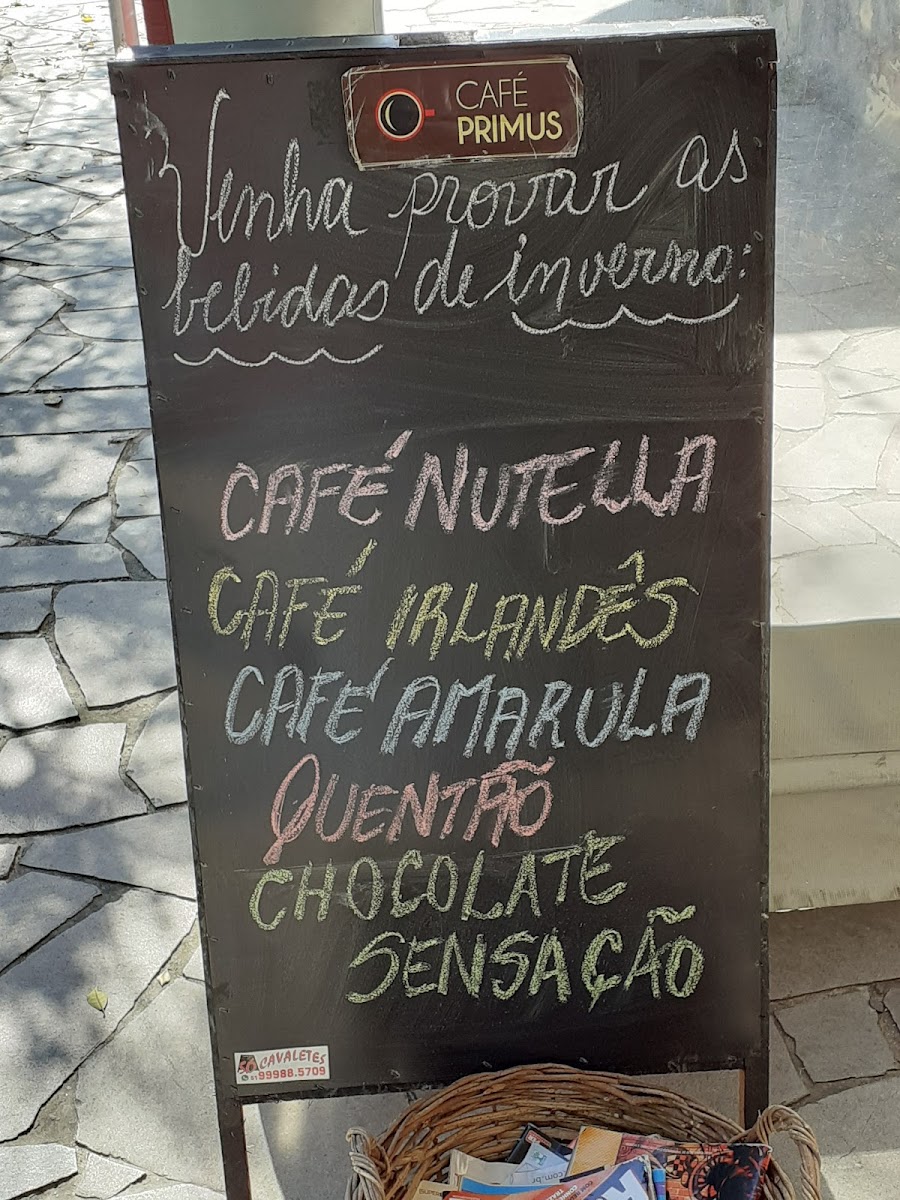 CAFÉ
PRIMUS
Venha provar as
bebidas de inverno:
CAFÉ NUTELLA
CAFÉ IRLANDÊS
CAFÉ AMARULA
QUENTÃO
CHOCOLATE
SENSAÇÃO
CAVALETES
99988.5709
.com.br